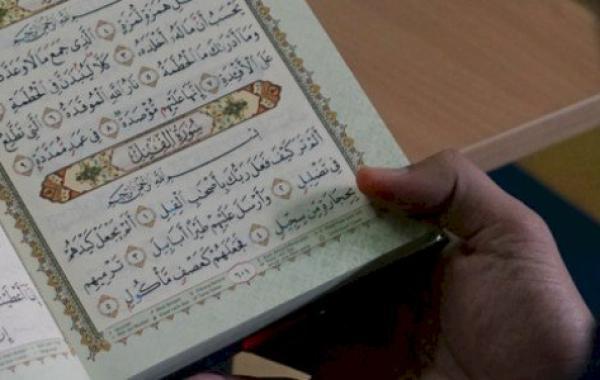 كُلِّ هُمَزَةٍ لُمَزَةٍ ۝١ الَّذِي جَمَعَ مَالًا وَعَدَّدَهُ
يَحْسَبُ أَنَّ مَالَهُ أَخْلَدَهُ ۝٣ كَلَّا لَيُنْبَذَنَّ فِي الْحُطَمَةِ
وَمَا أَدْرَاكَ مَا الْحُطَمَةُ ۝٥ نَارُ اللَّهِ الْمُوقَدَةُ ۝٦ الَّتِي تَطَّلِعُ
عَلَى الْأَفْئِدَةِ ۝٧ إِنَّهَا عَلَيْهِمْ مُؤْصَدَةٌ ۝٨ فِي عَمَدٍ مُمَدَّدَةٍ ۝٩
سُورَةُ الْفِيلِ
بِسْمِ اللَّهِ الرَّحْمَٰنِ الرَّحِيمِ
أَلَمْ تَرَ كَيْفَ فَعَلَ رَبُّكَ بِأَصْحَابِ الْفِيلِ ۝١ أَلَمْ يَجْعَلْ كَيْدَهُمْ
فِي تَضْلِيلٍ ۝٢ وَأَرْسَلَ عَلَيْهِمْ طَيْرًا أَبَابِيلَ ۝٣ تَرْمِيهِمْ
بِحِجَارَةٍ مِنْ سِجِّيلٍ ۝٤ فَجَعَلَهُمْ كَعَصْفٍ مَأْكُولٍ ۝٥
٦٠١